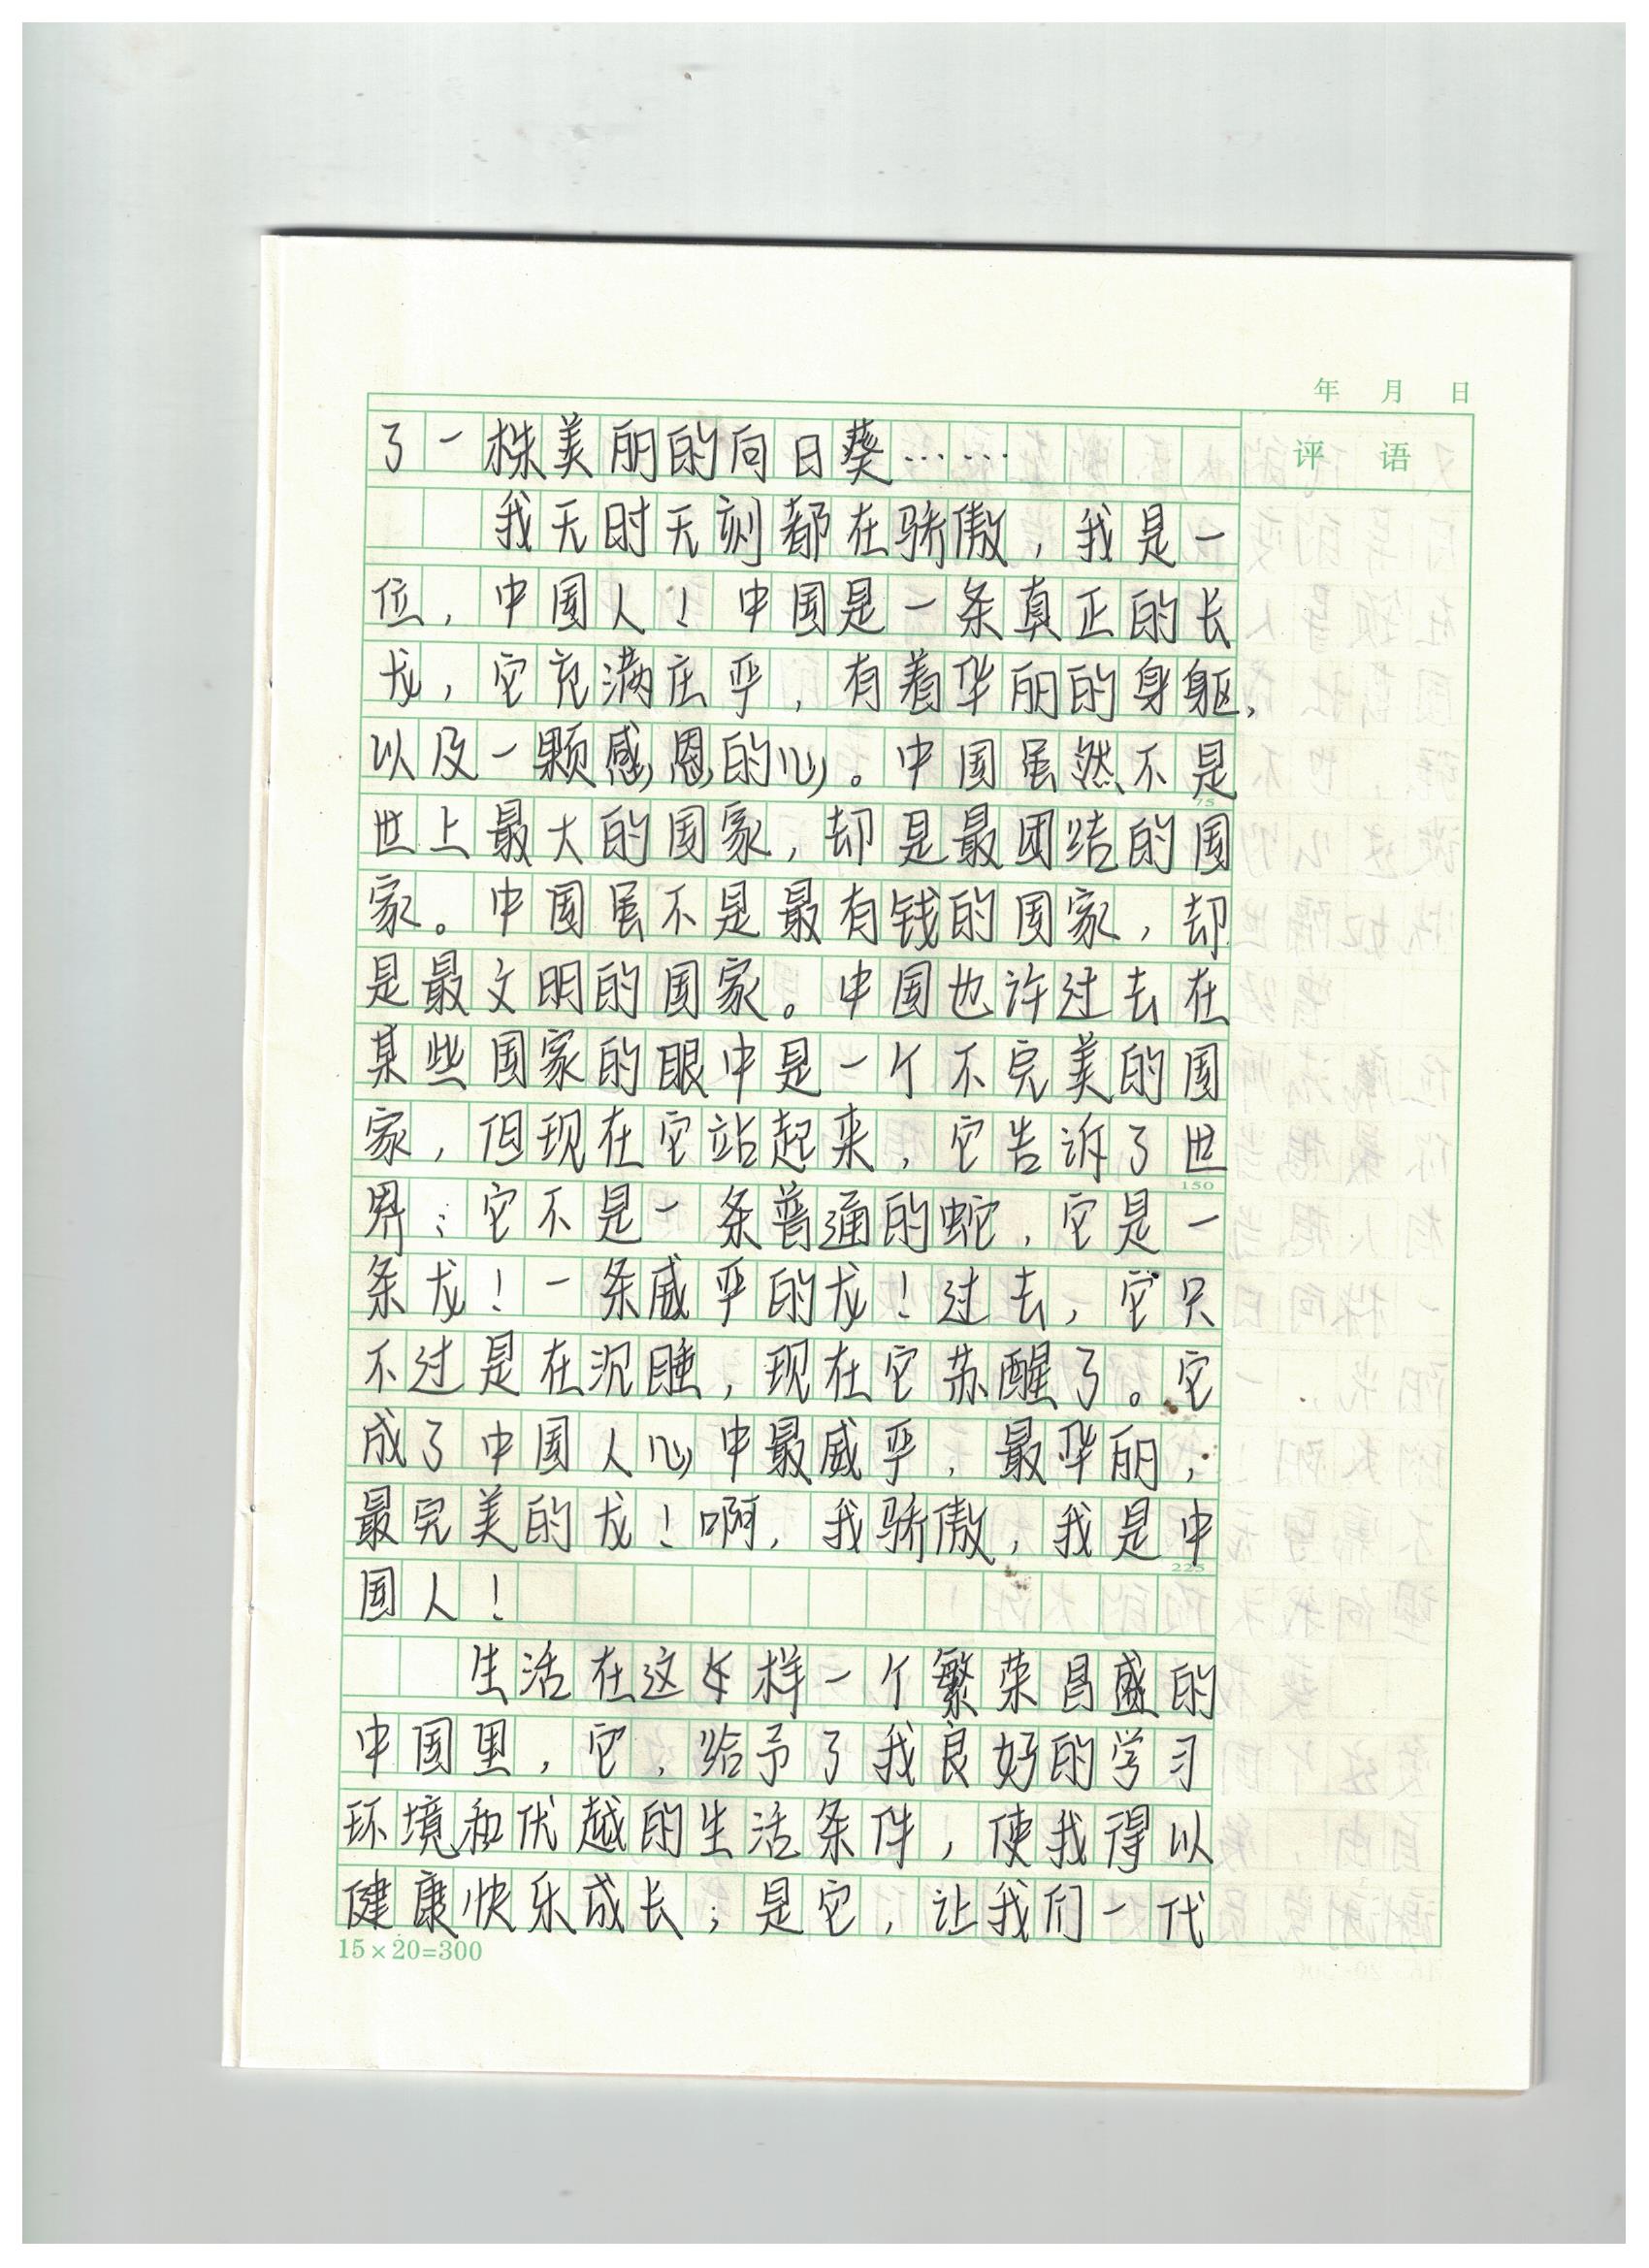 年 月 日
评 语
了一株美丽的向日葵……
我无时无刻都在骄傲，我是一
位，中国人！中国是一条真正的长
龙，它充满庄严，有着华丽的身躯，
以及一颗感恩的心。中国虽然不是
75
世上最大的国家，却是最团结的国
家。中国虽不是最有钱的国家，却
是最文明的国家。中国也许过去在
某些国家的眼中是一个不完美的国
家，但现在它站起来，它告诉了世
150
界：它不是一条普通的蛇，它是一
条龙！一条威严的龙！过去，它只
不过是在沉睡，现在它苏醒了。它
成了中国人心中最威严，最华丽，
最完美的龙！啊，我骄傲，我是中
225
国人！
生活在这样一个繁荣昌盛的
中国里，它，给予了我良好的学习
环境和优越的生活条件，使我得以
健康快乐成长；是它，让我们一代
15×20=300